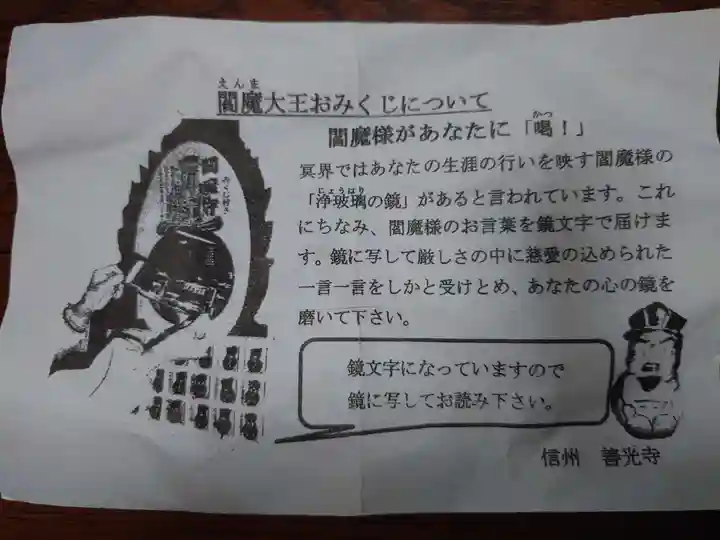 えんま
閻魔大王おみくじについて
閻魔様があなたに「喝！」
かつ
冥界ではあなたの生涯の行いを映す閻魔様の
じょうはり
「浄玻璃の鏡」があると言われています。これ
にちなみ、閻魔様のお言葉を鏡文字で届けま
す。鏡に写して厳しさの中に慈愛の込められた
一言一言をしかと受けとめ、あなたの心の鏡を
磨いて下さい。
鏡文字になっていますので
鏡に写してお読み下さい。
信州 善光寺